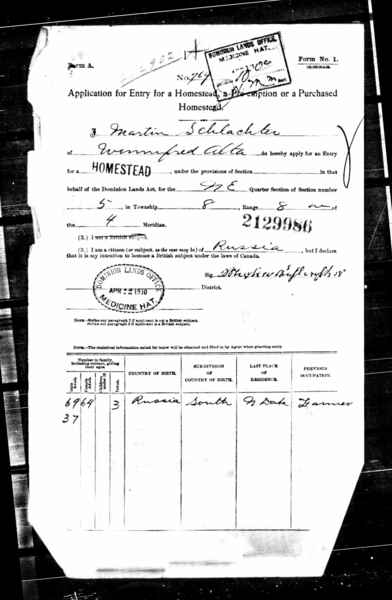 Form A.
Form No. 1.
DOMINION LANDS OFFICE
MEDICINE HAT.
No.
Application for Entry for a Homestead, a Pre-emption or a Purchased
Homestead.
I Martin Schlachter
of Winnifred Alta do hereby apply for an Entry
for a HOMESTEAD, under the provisions of Section in that
behalf of the Dominion Lands Act, for the NE Quarter Section of Section number
5 in Township 8 Range 8 of
the 4 Meridian. 2129986
(2.) I am a British subject.
(3.) I am a citizen (or subject, as the case may be) of Russia, but I declare
that it is my intention to become a British subject under the laws of Canada.
Sig.
District.
DOMINION LANDS OFFICE
APR 22 1910
MEDICINE HAT.
NOTE.—Strike out paragraph 2 if applicant is not a British subject.
Strike out paragraph 3 if applicant is a British subject.
NOTE.—The statistical information asked for below will be obtained and filled in by Agent when granting entry.
Number in family, including entrant, giving their ages
Total.
COUNTRY OF BIRTH.
SUBDIVISION OF COUNTRY OF BIRTH.
LAST PLACE OF RESIDENCE.
PREVIOUS OCCUPATION.
69 69 3 Russia South N Dak Farmer
37